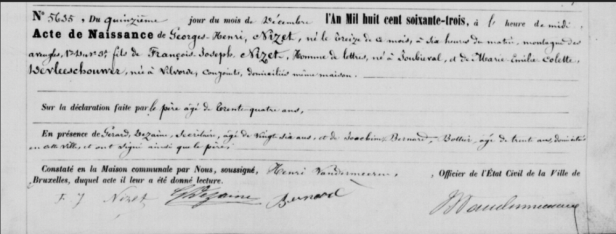 N° 5635, Du quinzième jour du mois de Décembre l'An Mil huit cent soixante-trois, à l' heure de midi.
Acte de Naissance de Georges Henri, Nizet, né le treize de ce mois, à six heures du matin, montagne des
aveugles, fils de François Joseph Nizet, Homme de lettres, né à et de Marie Emilie Colette
Devleeschouwer, née à Vilvorde, conjoints, domiciliés même maison.
Sur la déclaration faite par le père âgé de trente quatre ans,
En présence de Gérard Dezaine, âgé de vingt six ans, et de Joachim Bernard, Bottier, âgé de trente ans domiciliés
en cette ville, et ont signé ainsi que le père.
Constaté en la Maison communale par Nous, soussigné, Henri Officier de l'État Civil de la Ville de
Bruxelles, duquel acte il leur a été donné lecture.
F. J Nizet Bernard